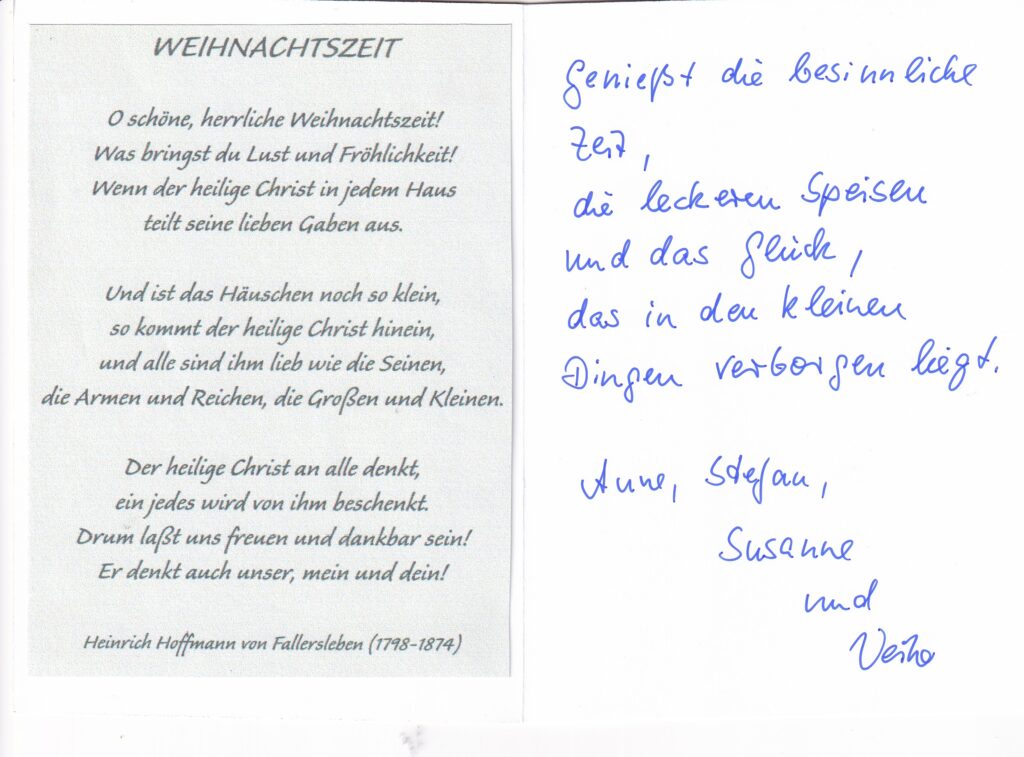 WEIHNACHTSZEIT
O schöne, herrliche Weihnachtszeit!
Was bringst du Lust und Fröhlichkeit!
Wenn der heilige Christ in jedem Haus
teilt seine lieben Gaben aus.
Und ist das Häuschen noch so klein,
so kommt der heilige Christ hinein,
und alle sind ihm lieb wie die Seinen,
die Armen und Reichen, die Großen und Kleinen.
Der heilige Christ an alle denkt,
ein jedes wird von ihm beschenkt.
Drum laßt uns freuen und dankbar sein!
Er denkt auch unser, mein und dein!
Heinrich Hoffmann von Fallersleben (1798-1874)
Genießt die besinnliche
Zeit,
die leckeren Speisen
und das Glück,
das in den kleinen
Dingen verborgen liegt.
Anne, Stefan,
Susanne
und